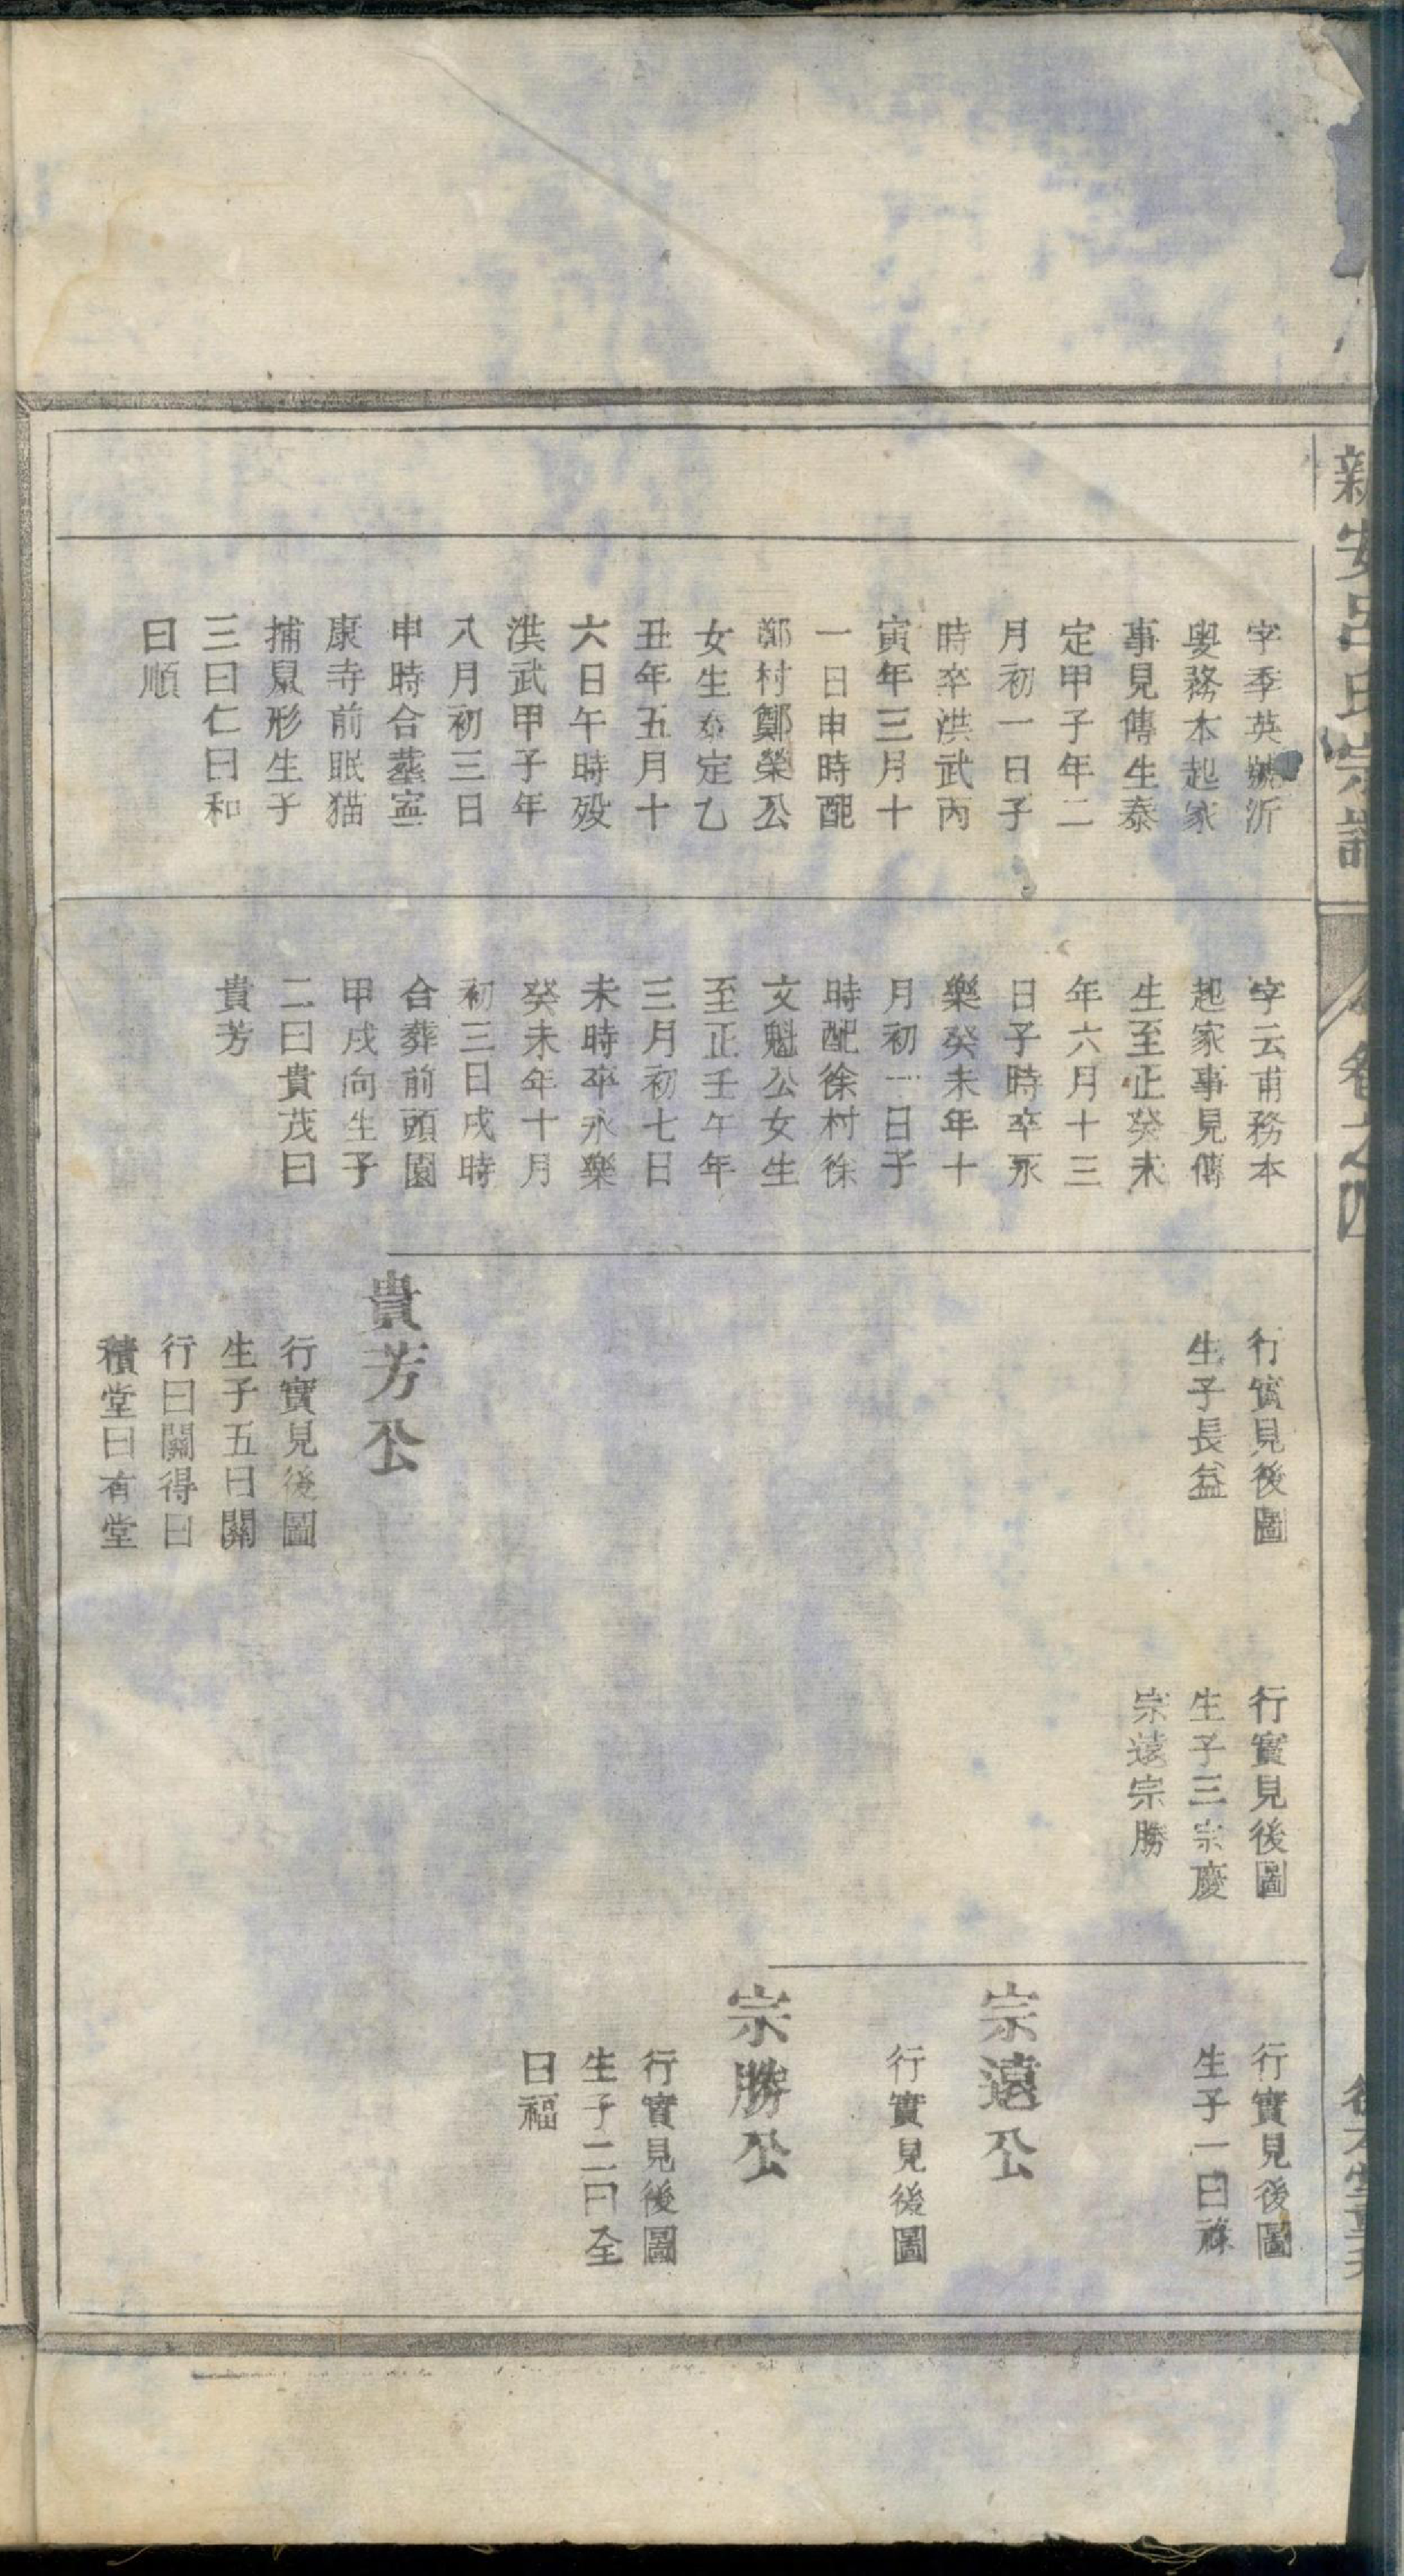 新安呂氏宗譜
卷之四
字季英號沂
叟務本起家
事見傳生泰
定甲子年二
月初一日子
時卒洪武丙
寅年三月十
一日申時配
鄭村鄭榮公
女生泰定乙
丑年五月十
六日午時歿
洪武甲子年
八月初三日
申時合塟寍
康寺前眠猫
捕䑕形生子
三曰仁曰和
曰順
字云甫務本
起家事見傳
生至正癸未
年六月十三
日子時卒永
樂癸未年十
月初一日子
時配徐村徐
文魁公女生
至正壬午年
三月初七日
未時卒永樂
癸未年十月
初三日戌時
合葬前頭園
甲戌向生子
二曰貴茂曰
貴芳
行實見後圖
生子長益
貴芳公
行實見後圖
生子五曰關
行曰關得曰
積堂曰有堂
行實見後圖
生子三宗慶
宗遠宗勝
行實見後圖
生子一曰祿
宗遠公
行實見後圖
宗勝公
行實見後圖
生子二曰全
曰福